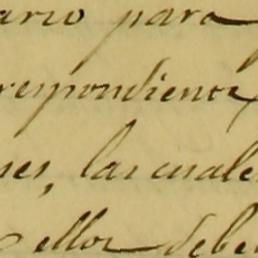 ario para
respondiente
nes, las cuales
ellos debe